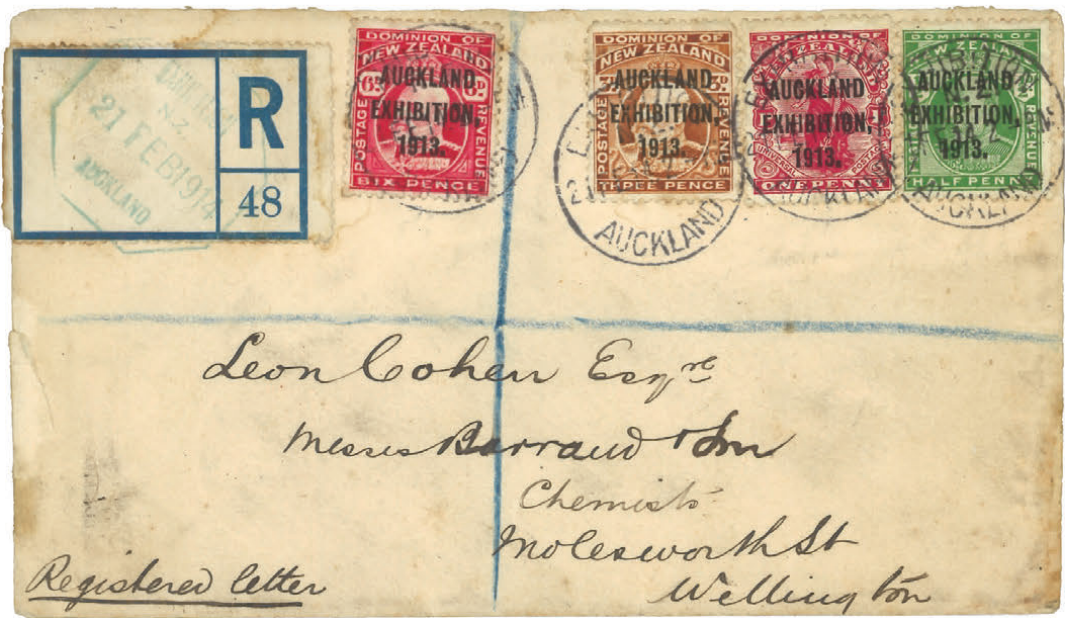 N.Z.
27 FEB 1914
AUCKLAND
R
48
DOMINION OF
NEW ZEALAND
6D
POSTAGE
REVENUE
AUCKLAND
EXHIBITION,
1913.
SIX PENCE
DOMINION OF
NEW ZEALAND
POSTAGE
& REVENUE
AUCKLAND
EXHIBITION,
1913.
THREE PENCE
AUCKLAND
DOMINION OF
NEW ZEALAND
UNIVERSAL POSTAGE
AUCKLAND
EXHIBITION,
1913.
ONE PENNY
AUCKLAND
DOMINION OF
NEW ZEALAND
REVENUE
AUCKLAND
EXHIBITION,
1913.
HALF PENNY
AUCKLAND
Leon Cohen Esqre
Messrs Barraud & Son
Chemists
Molesworth St
Wellington
Registered letter